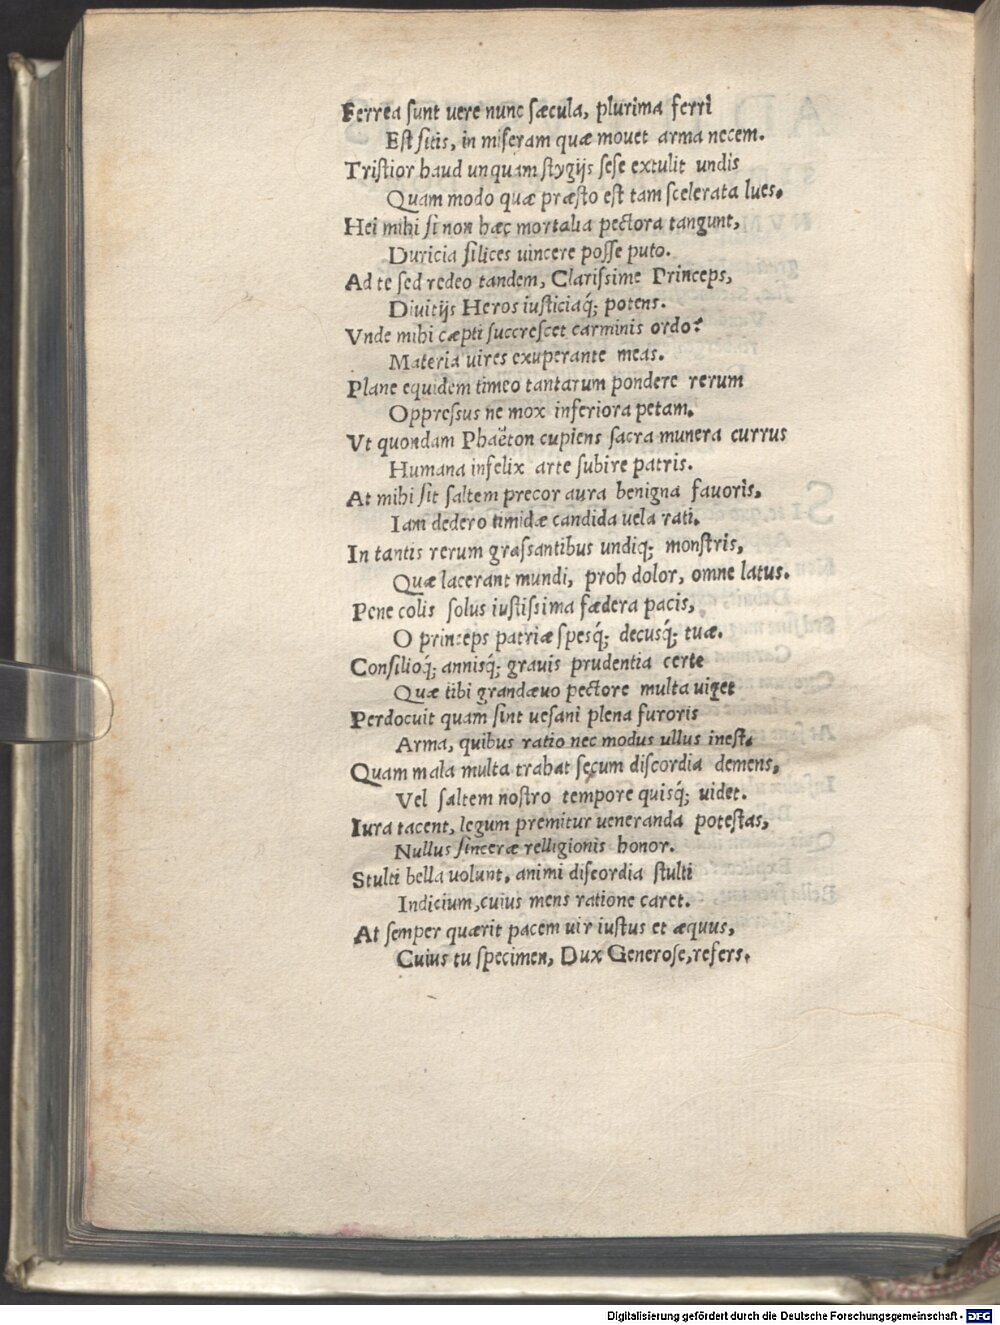 Ferrea sunt uere nunc sæcula, plurima ferri
Est sitis, in miseram quæ mouet arma necem.
Tristior haud unquam stygijs sese extulit undis
Quam modo quæ præsto est tam scelerata lues.
Hei mihi si non hæc mortalia pectora tangunt,
Duricia silices uincere posse puto.
Ad te sed redeo tandem, Clarissime Princeps,
Diuitijs Heros iusticiaq́; potens.
Vnde mihi cæpti succrescet carminis ordo?
Materia uires exuperante meas.
Plane equidem timeo tantarum pondere rerum
Oppressus ne mox inferiora petam.
Vt quondam Phaëton cupiens sacra munera currus
Humana infelix arte subire patris.
At mihi sit saltem precor aura benigna fauoris,
Iam dedero timidæ candida uela rati.
In tantis rerum grassantibus undiq; monstris,
Quæ lacerant mundi, proh dolor, omne latus.
Pene colis solus iustissima fædera pacis,
O princeps patriæ spesq́; decusq́; tuæ.
Consilioq́; annisq́; grauis prudentia certe
Quæ tibi grandæuo pectore multa uiget
Perdocuit quam sint uesani plena furoris
Arma, quibus ratio nec modus ullus inest.
Quam mala multa trahat secum discordia demens,
Vel saltem nostro tempore quisq; uidet.
Iura tacent, legum premitur ueneranda potestas,
Nullus sinceræ relligionis honor.
Stulti bella uolunt, animi discordia stulti
Indicium, cuius mens ratione caret.
At semper quærit pacem uir iustus et æquus,
Cuius tu specimen, Dux Generose, refers.
Digitalisierung gefördert durch die Deutsche Forschungsgemeinschaft - DFG